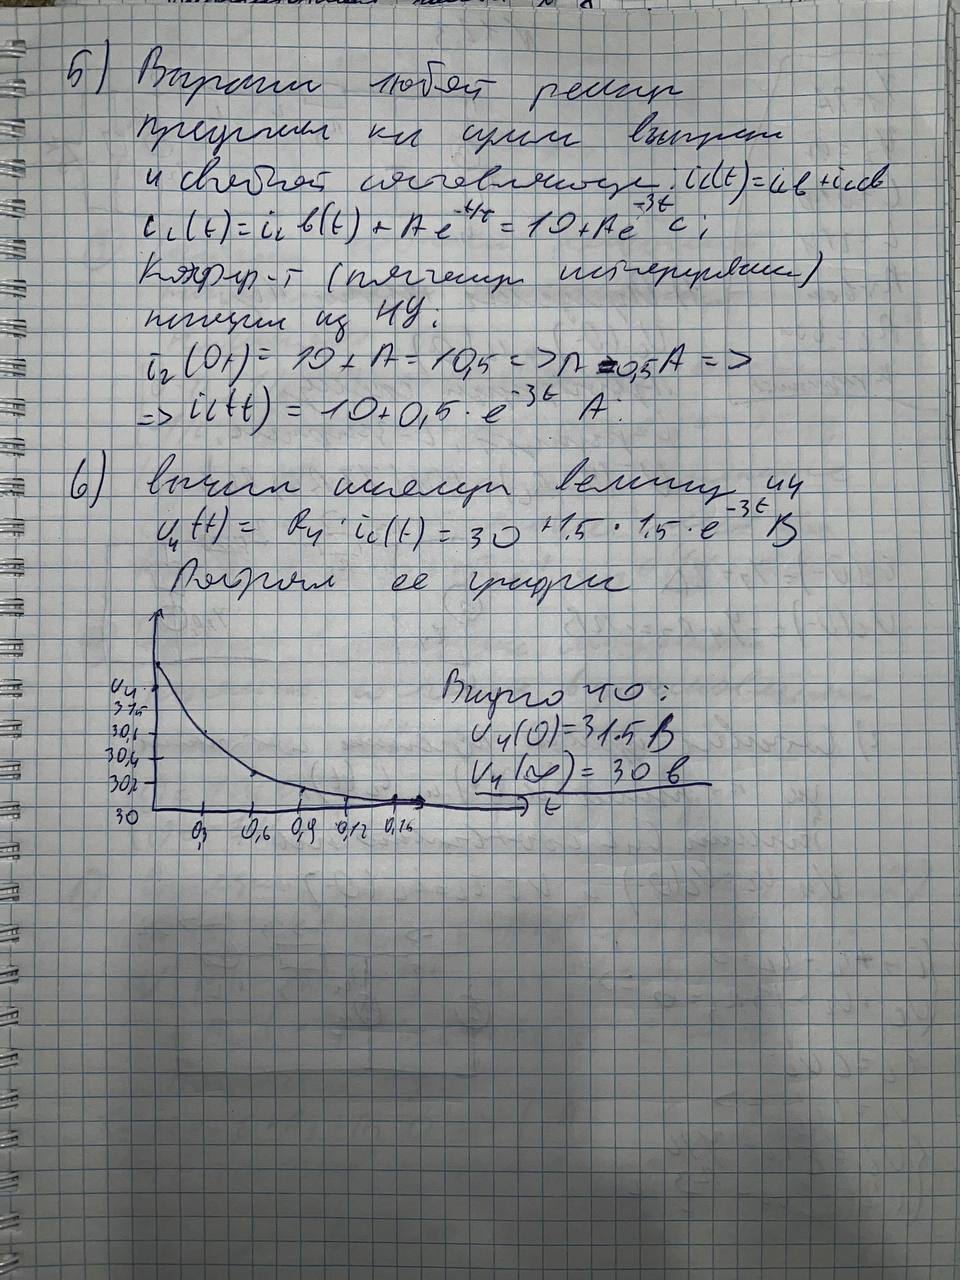 5) Выразим любой режим
и свободной составляющие: iL(t)=iLв+iLсв
iL(t)=iLв(t)+Ae^-t/τ=10+Ae^-3t c;
Коэфф-т (постоянную интегрирования)
из НУ:
iL(0+)=10+A=10,5=>A=0,5A=>
=>iL(t)=10+0,5·e^-3t A.
6) искомую величину u4
u4(t)=R4·iL(t)=30+1.5·1,5·e^-3t В
Построим ее график
u4
31,5
30,6
30,4
30,2
30
0,3
0,6
0,9
0,12
0,15
t
Видно что:
u4(0)=31.5 В
u4(∞)=30 в